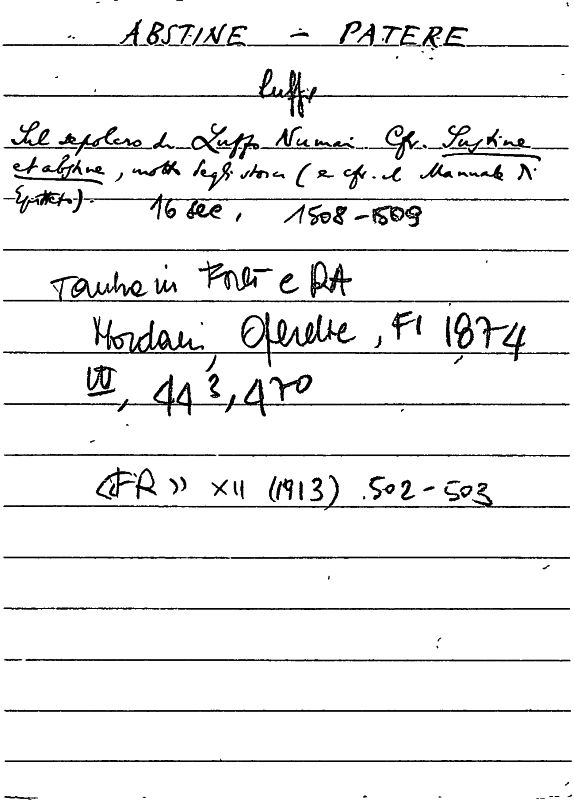 ABSTINE - PATERE
Luffo
Sul sepolcro di Luffo Numai Cfr. Sustine
et abstine, motto degli stoici (e cfr. il Manuale di
Epitteto). 16 sec, 1508-1509
Tombe in Forlì e RA
Mordani, Operette, FI 1874
III, 443, 470
«FR» XII (1913) 502-503